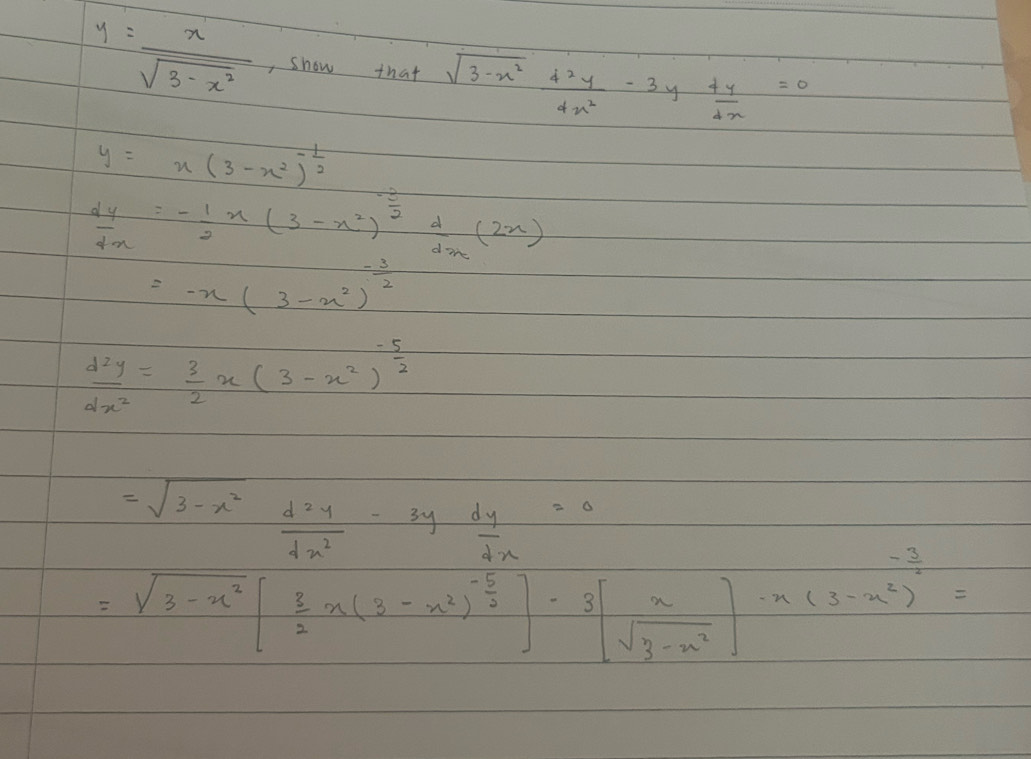 y = x / √(3 - x²) , show that √(3 - x²) d²y/dx² - 3y dy/dx = 0
y = x (3 - x²)^(-1/2)
dy/dx = - 1/2 x (3 - x²)^(-3/2) d/dx (2x)
= -x (3 - x²)^(-3/2)
d²y/dx² = 3/2 x (3 - x²)^(-5/2)
= √(3 - x²) d²y/dx² - 3y dy/dx = 0
= √(3 - x²) [ 3/2 x (3 - x²)^(-5/2) ] - 3 [ x / √(3 - x²) ] -x (3 - x²)^(-3/2) =